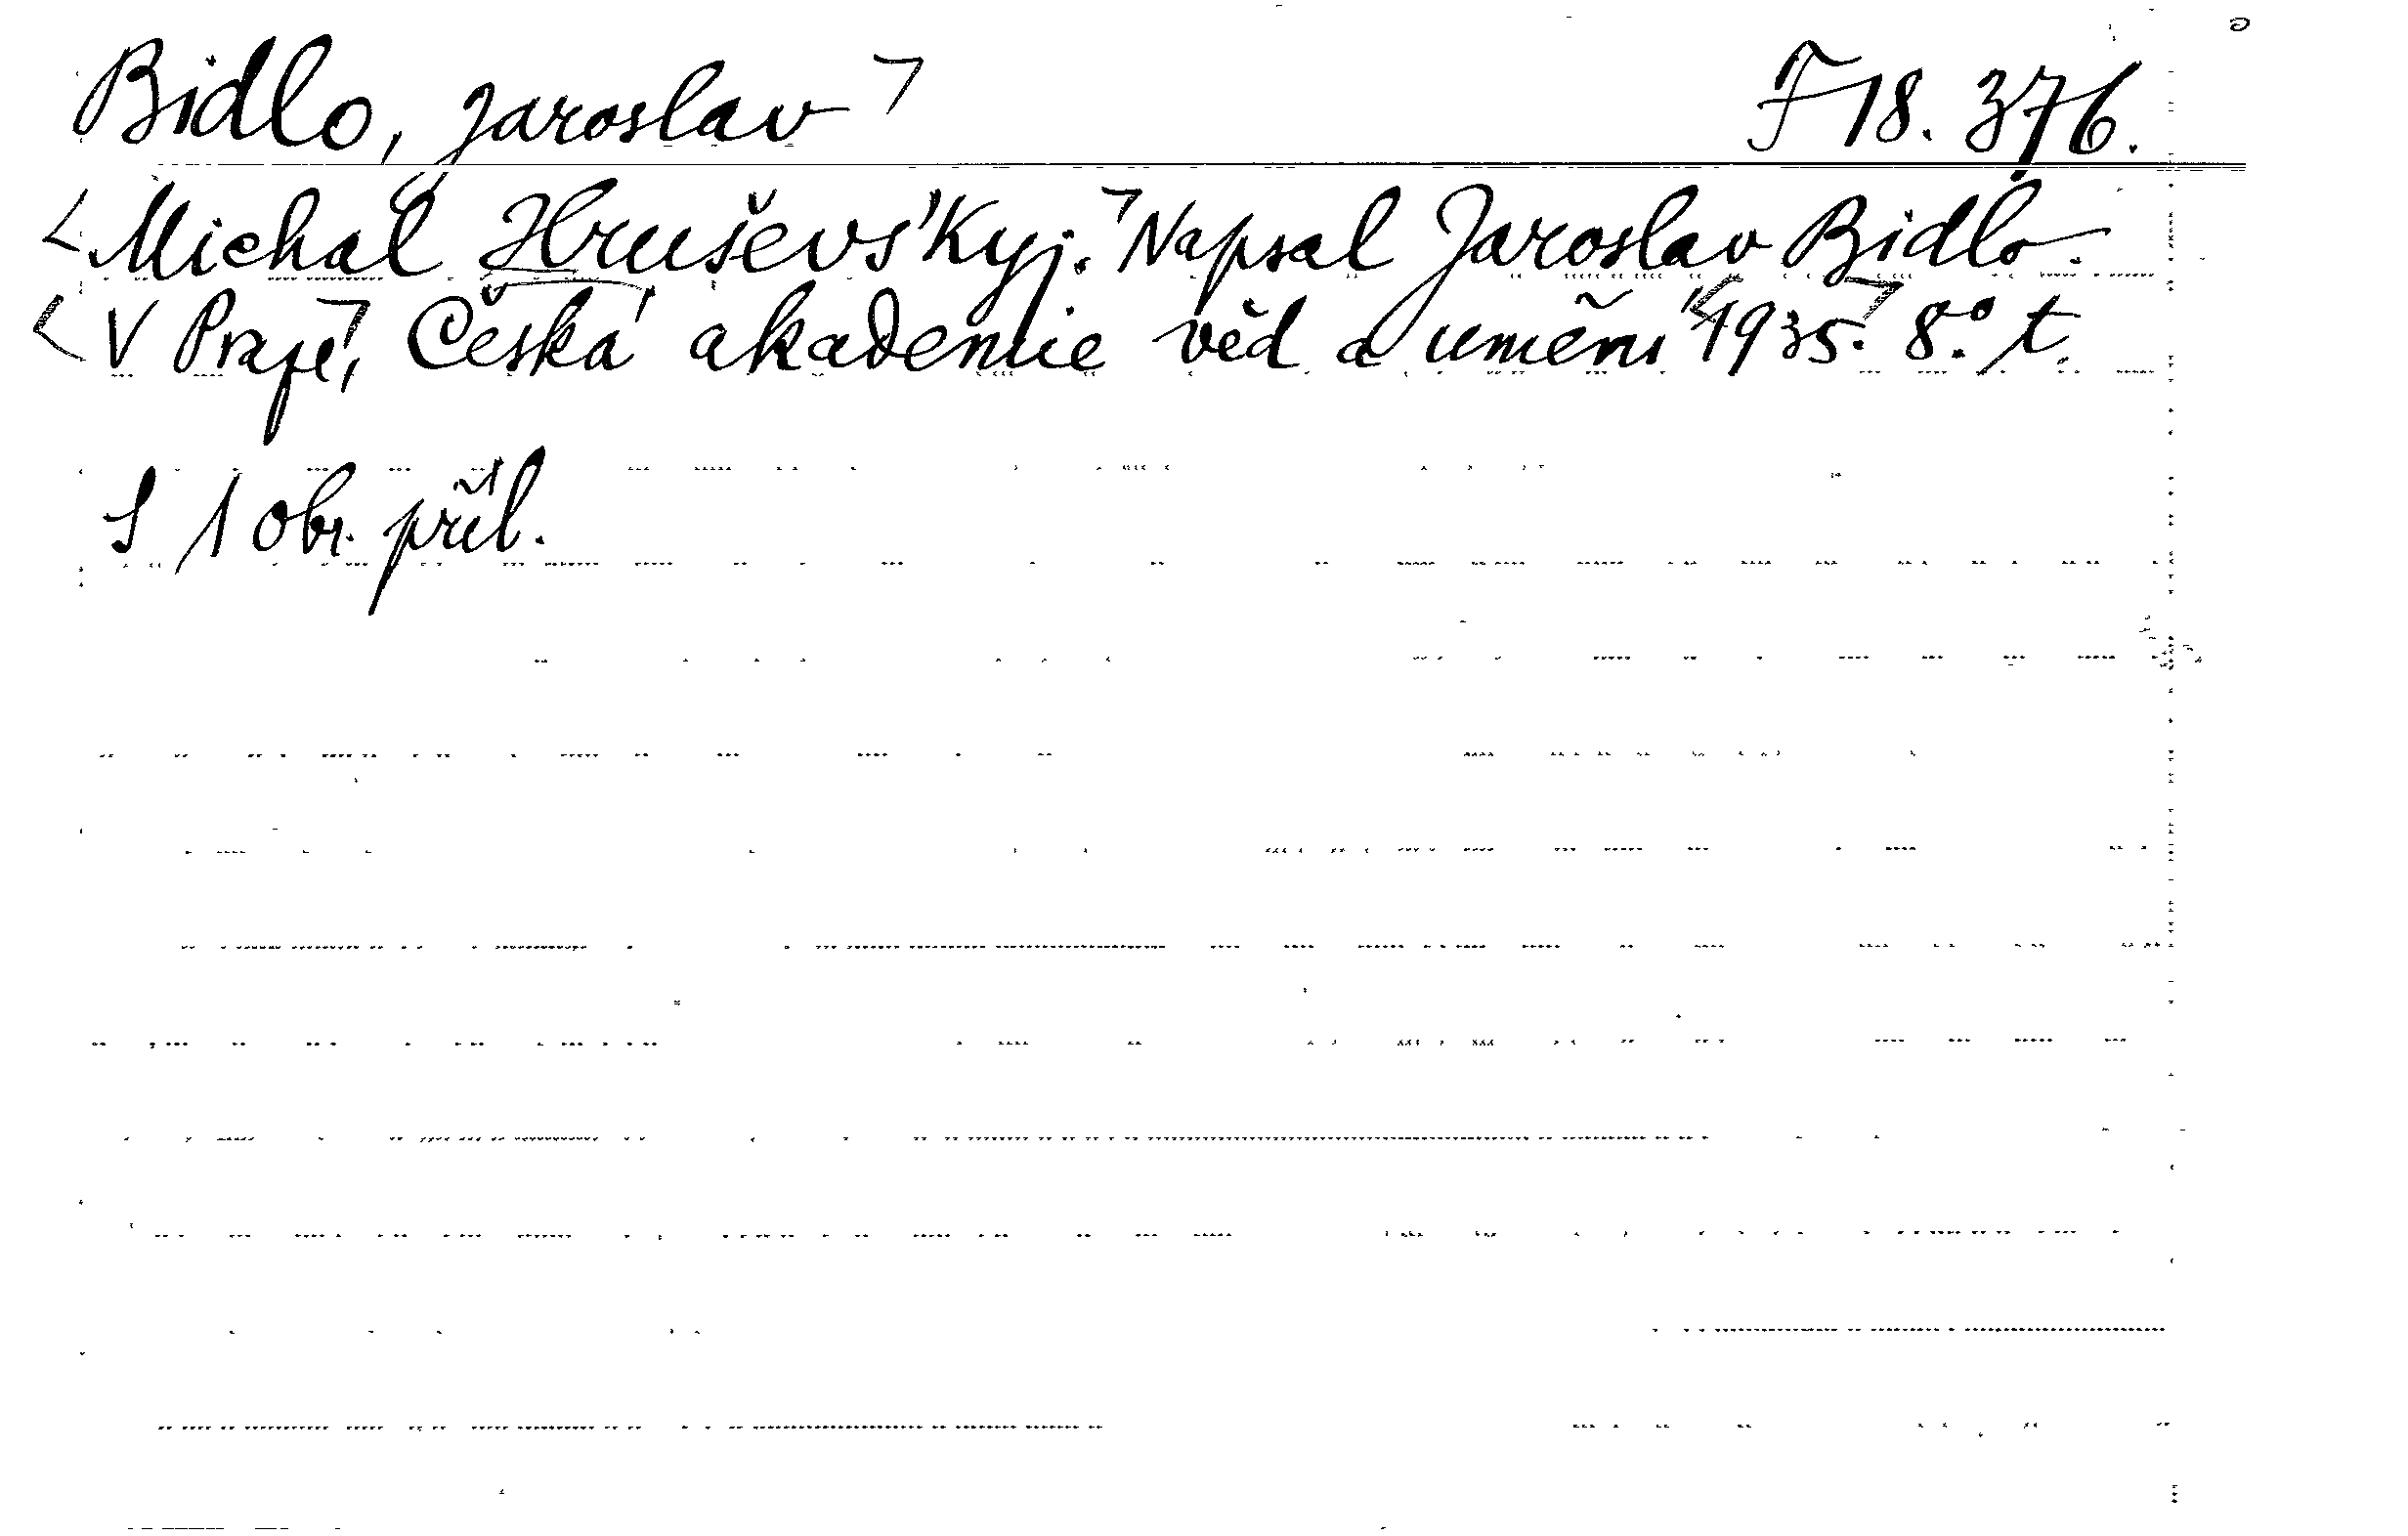 Bidlo, Jaroslav F 18. 376.
Michal Hruševs'kyj. Napsal Jaroslav Bidlo.
V Praze, Česká akademie věd a umění 1935. 8.° t.
S 1 obr. příl.